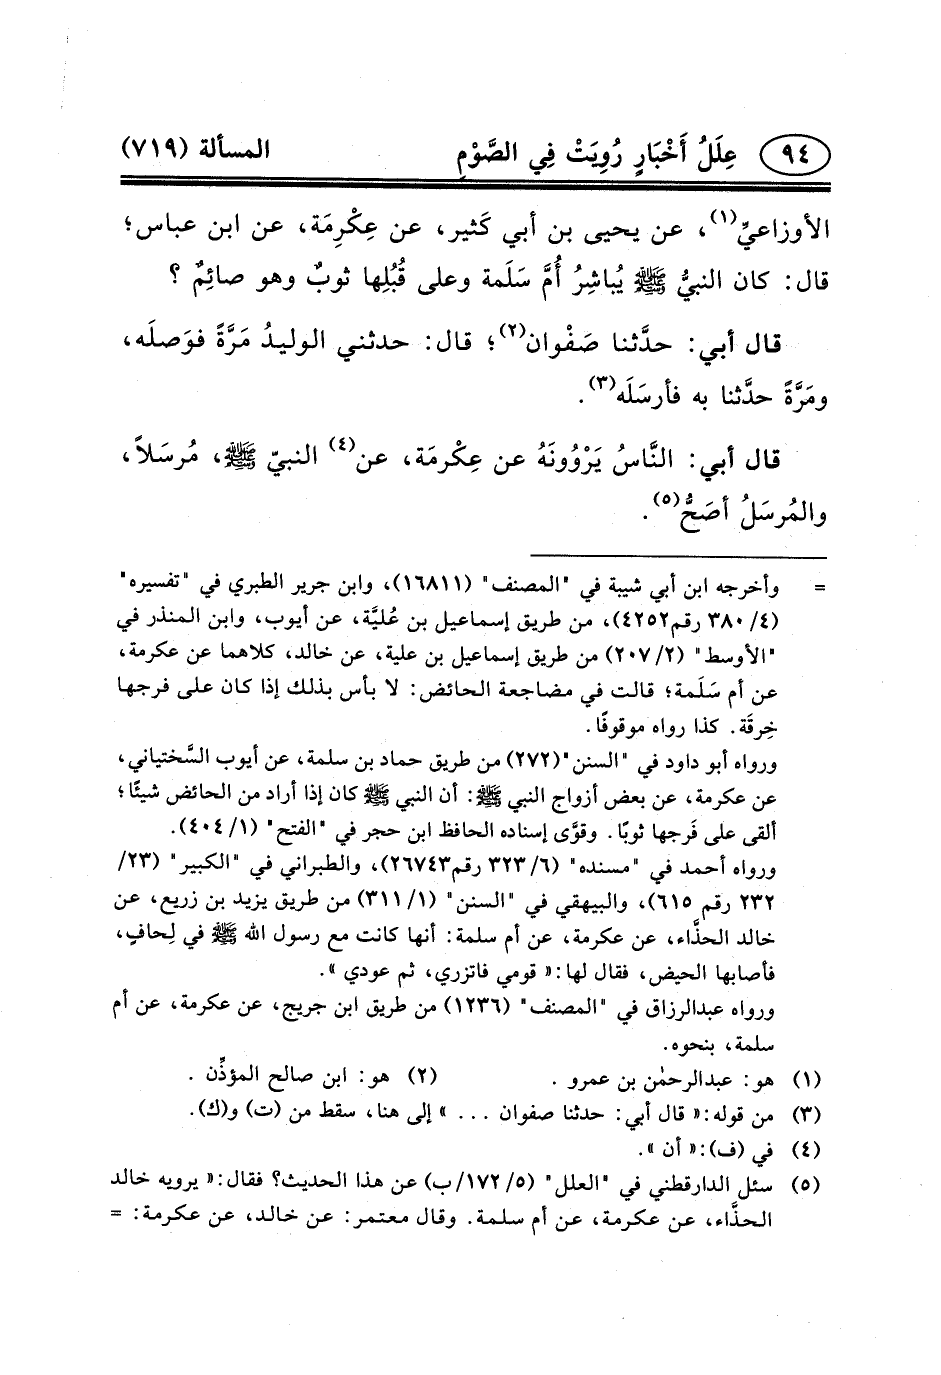 ٩٤ عِلَلُ أَخْبَارٍ رُوِيَتْ فِي الصَّوْمِ المسألة (٧١٩)
الأوزاعيِّ(١)، عن يحيى بن أبي كَثير، عن عِكْرِمَة، عن ابن عباس؛
قال: كان النبيُّ ﷺ يُباشِرُ أُمَّ سَلَمة وعلى قُبُلِها ثوبٌ وهو صائِمٌ ؟
قال أبي: حدَّثنا صَفْوان(٢)؛ قال: حدثني الوليدُ مَرَّةً فوَصلَه،
ومَرَّةً حدَّثنا به فأرسَلَه(٣).
قال أبي: النَّاسُ يَرْوُونَهُ عن عِكْرمَة، عن(٤) النبيِّ ﷺ، مُرسَلاً،
والمُرسَلُ أصَحُّ(٥).
= وأخرجه ابن أبي شيبة في "المصنف" (١٦٨١١)، وابن جرير الطبري في "تفسيره"
(٤/ ٣٨٠ رقم٤٢٥٢)، من طريق إسماعيل بن عُليَّة، عن أيوب، وابن المنذر في
"الأوسط" (٢٠٧/٢) من طريق إسماعيل بن علية، عن خالد، كلاهما عن عكرمة،
عن أم سَلَمة؛ قالت في مضاجعة الحائض: لا بأس بذلك إذا كان على فرجها
خِرقَة. كذا رواه موقوفًا.
ورواه أبو داود في "السنن"(٢٧٢) من طريق حماد بن سلمة، عن أيوب السَّختياني،
عن عكرمة، عن بعض أزواج النبي ﷺ: أن النبي ﷺ كان إذا أراد من الحائض شيئًا؛
ألقى على فَرجها ثوبًا. وقوَّى إسناده الحافظ ابن حجر في "الفتح" (١/ ٤٠٤).
ورواه أحمد في "مسنده" (٦/ ٣٢٣ رقم٢٦٧٤٣)، والطبراني في "الكبير" (٢٣/
٢٣٢ رقم ٦١٥)، والبيهقي في "السنن" (١/ ٣١١) من طريق يزيد بن زريع، عن
خالد الحذَّاء، عن عكرمة، عن أم سلمة: أنها كانت مع رسول الله ﷺ في لِحافٍ،
فأصابها الحيض، فقال لها:« قومي فاتزري، ثم عودي ».
ورواه عبدالرزاق في "المصنف" (١٢٣٦) من طريق ابن جريج، عن عكرمة، عن أم
سلمة، بنحوه.
(١) هو: عبدالرحمٰن بن عمرو . (٢) هو: ابن صالح المؤذِّن .
(٣) من قوله:« قال أبي: حدثنا صفوان ... » إلى هنا، سقط من (ت) و(ك).
(٤) في (ف):« أن ».
(٥) سئل الدارقطني في "العلل" (٥/ ١٧٢/ب) عن هذا الحديث؟ فقال:« يرويه خالد
الحذَّاء، عن عكرمة، عن أم سلمة. وقال معتمر: عن خالد، عن عكرمة: =